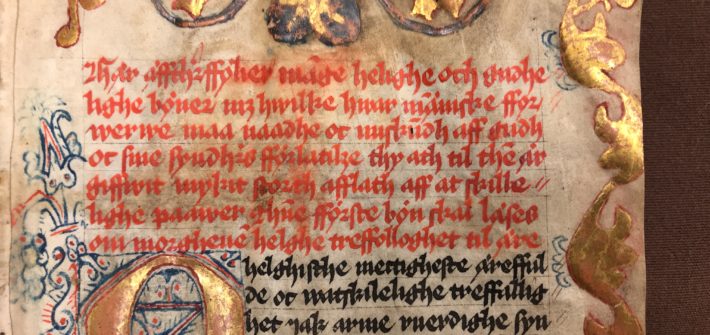 Hær æffth's ffölier mãge helighe och gudhe
lighe böner mz hwilke hwar mãniske ffor
werwe maa naadhe oc miskũdh aff gudh
oc sine syndh's fforlatilze thy ath til thẽ är
giffwit mykit storth afflath aff at skille
lighe paawer Thũe fförste bön skal läses
om morghenẽ helghe treffolloghet til äre
O helghisthe mettigheste ärefful
de oc watskilelighe treffallig
het jak arme vuerdighe syn